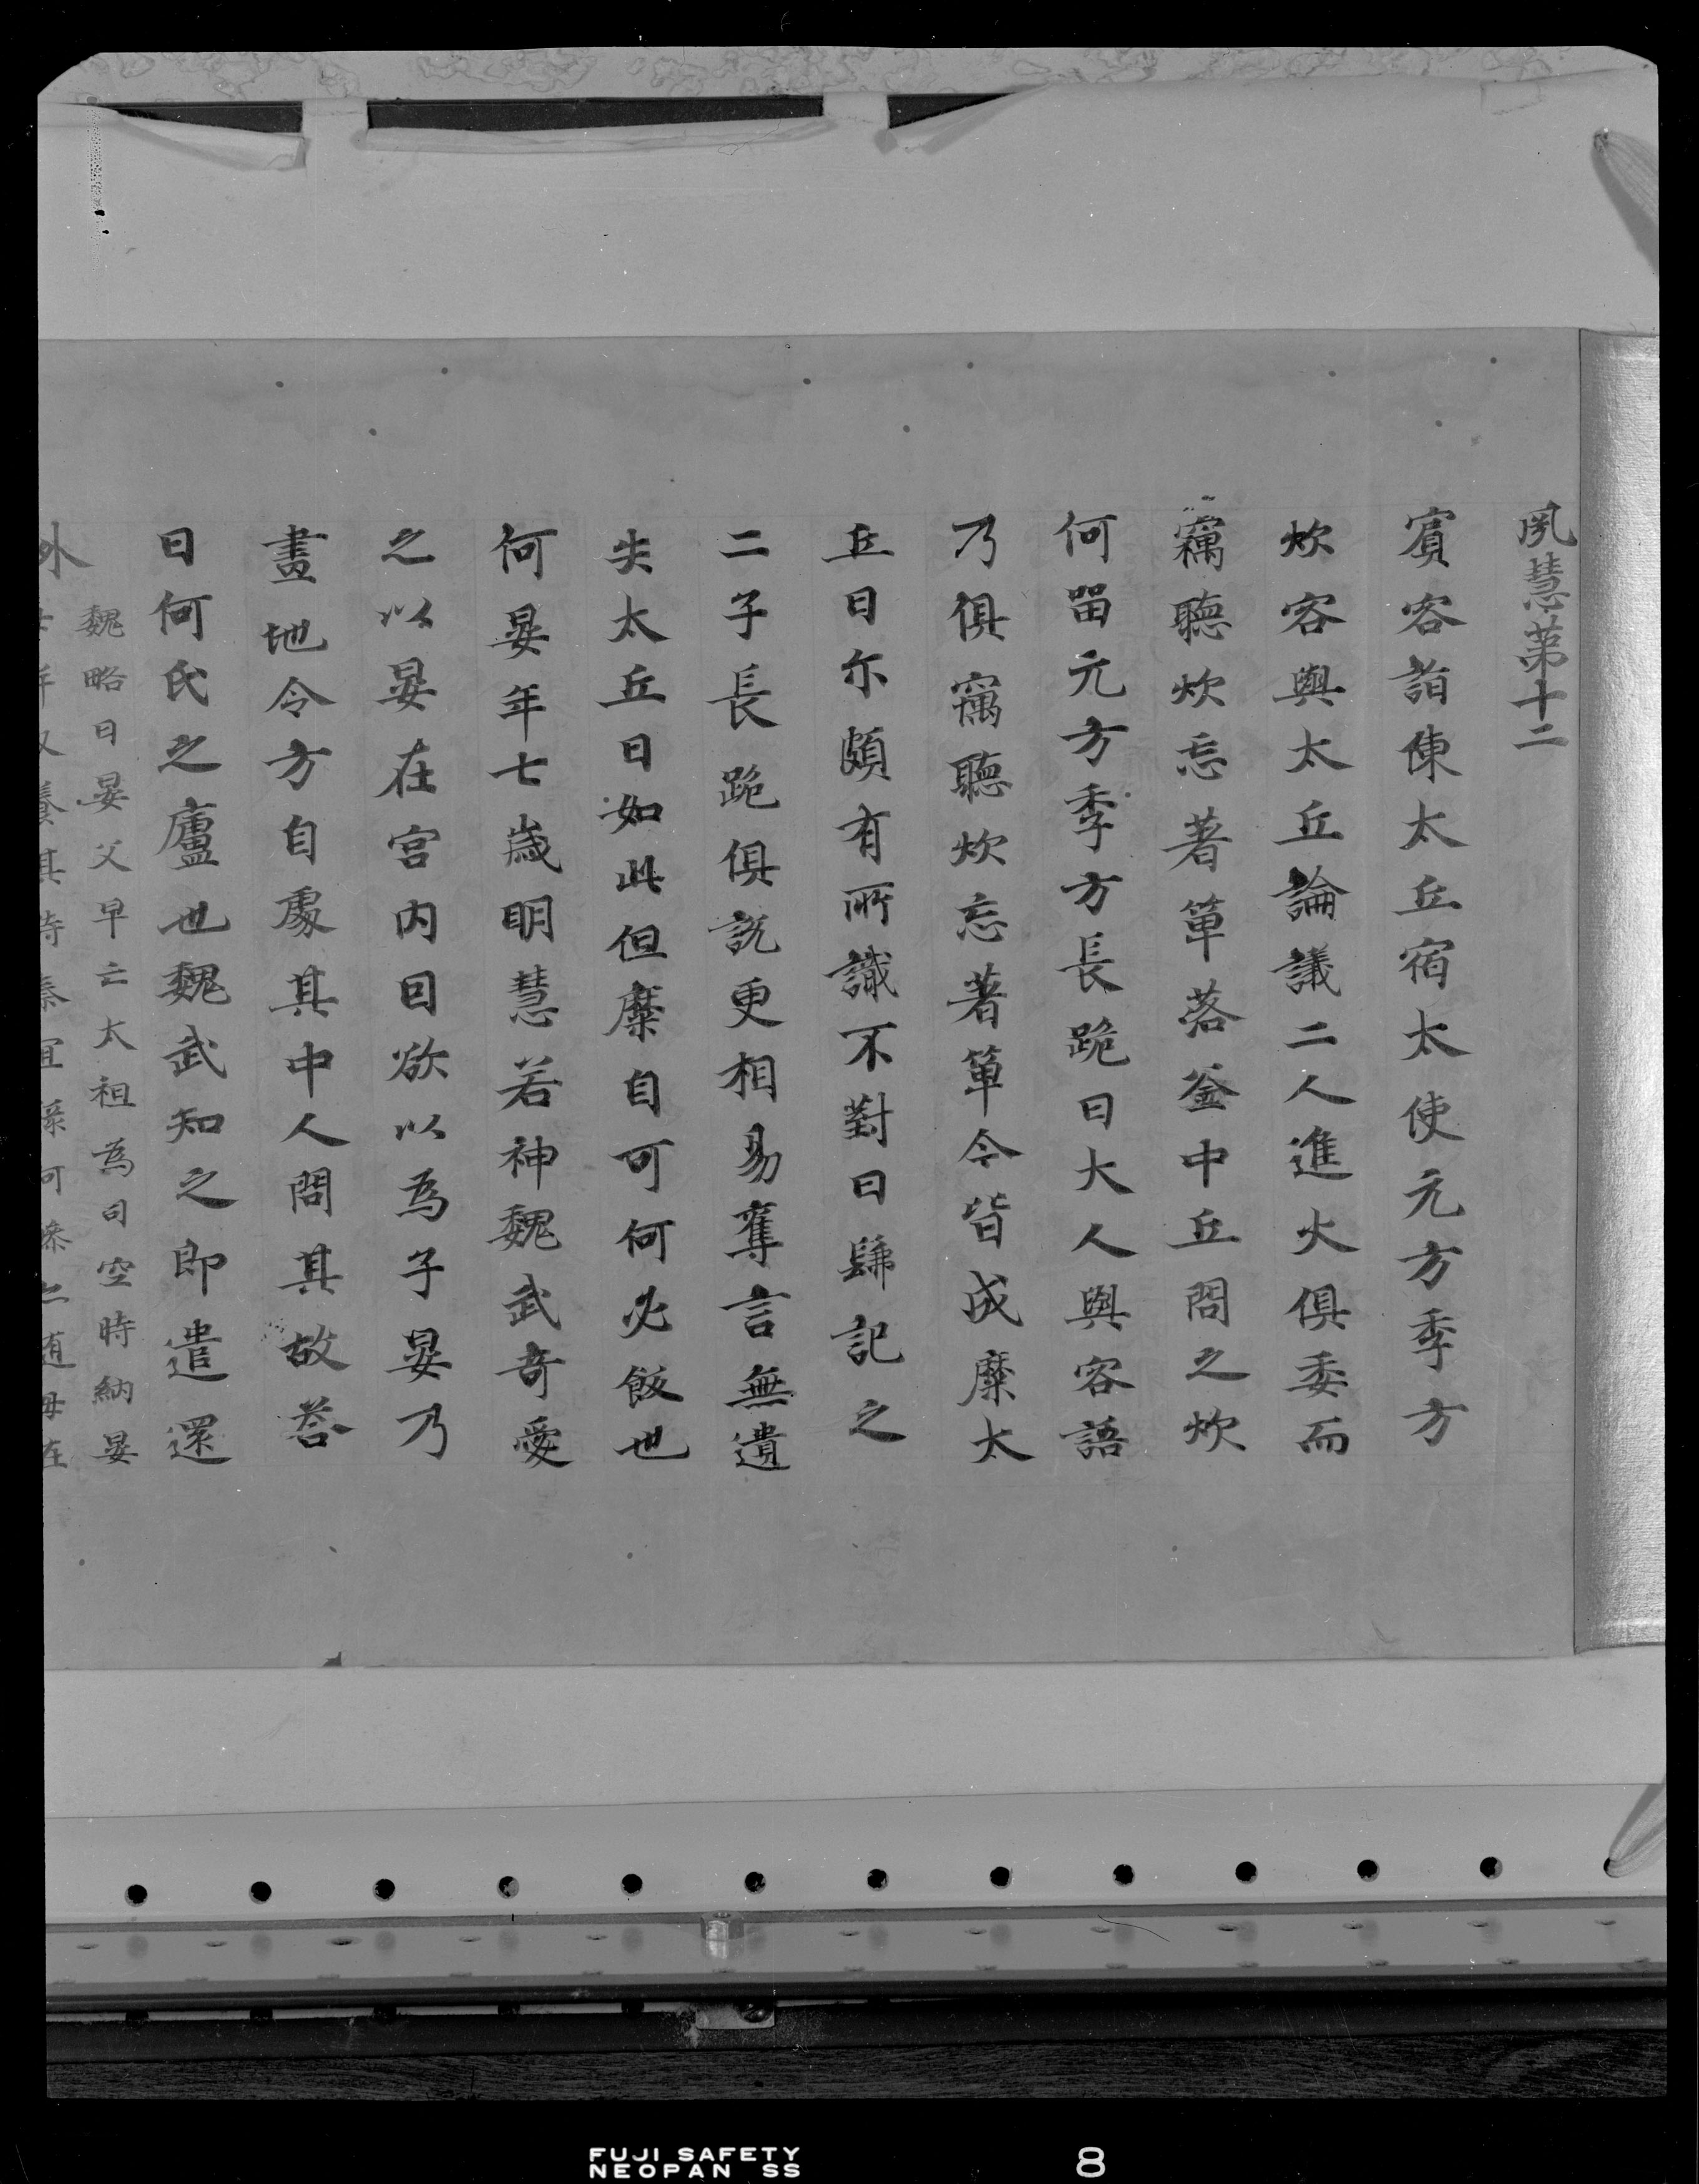 夙慧第十二
賓客詣陳太丘宿太使元方季方
炊客與太丘論議二人進火俱委而
竊聽炊忘著箄落釜中丘問之炊
何留元方季方長跪曰大人與客語
乃俱竊聽炊忘著箄今皆成糜太
丘曰尓頗有所識不對曰髴記之
二子長跪俱説更相易奪言無遺
失太丘曰如此但糜自可何必飯也
何晏年七歳明慧若神魏武奇愛
之以晏在宮内因欲以為子晏乃
畫地令方自處其中人問其故荅
曰何氏之廬也魏武知之即遣還
魏略曰晏父早亡太祖為司空時納晏
外
FUJI SAFETY
NEOPAN SS
8